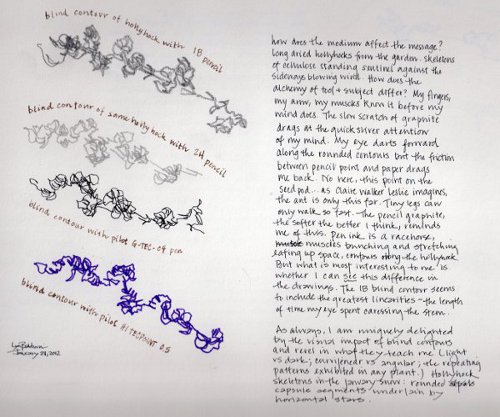 blind contour of hollyhock with 1B pencil
blind contour of same hollyhock with 2H pencil
blind contour with pilot G-TEC-C4 pen
blind contour with pilot HI TECPOINT 0.5
Lyn Baldwin
January 2012
how does the medium affect the message?
Long dried hollyhocks from the garden. skeletons
of cellulose standing sentinel against the
sideways blowing wind. How does the
alchemy of tool + subject differ? My fingers,
my arm, my muscles know it before my
mind does. The slow scratch of graphite
drags at the quicksilver attention
of my mind. My eye darts forward
along the rounded contours but the friction
between pencil point and paper drags
me back. No here, this point on the
seed pod... as Claire Walker Leslie imagines,
the ant is only this far. Tiny legs can
only walk so fast. The pencil graphite,
the softer the better I think, reminds
me of this. pen ink is a racehorse,
muscles bunching and stretching
eating up space, contours of the hollyhock.
But what is most interesting to me is
whether I can see this difference in
the drawings. The 1B blind contour seems
to include the greatest linearities - the length
of time my eye spent caressing the stem.
As always, I am uniquely delighted
by the visual impact of blind contours
and revel in what they teach me (light
vs dark; curvilinear vs angular; the repeating
patterns exhibited in any plant.) Hollyhock
skeletons in the January snow: rounded sepals
capsule segments underlain by
horizontal stars.